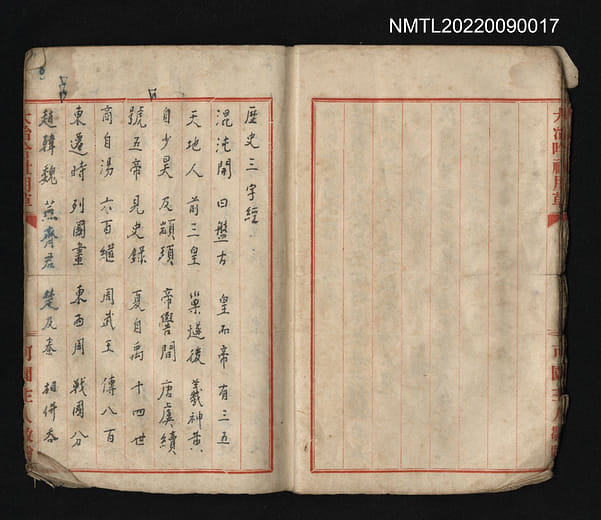 NMTL20220090017
歷史三字經
混沌開 曰盤古 皇而帝 有三五
天地人 前三皇 巢燧後 羲神黃
自少昊 及顓頊 帝嚳間 唐虞續
號五帝 見史錄 夏自禹 十四世
商自湯 六百繼 周武王 傳八百
東遷時 列國畫 東西周 戰國分
趙韓魏 燕齊君 楚及秦 相併吞